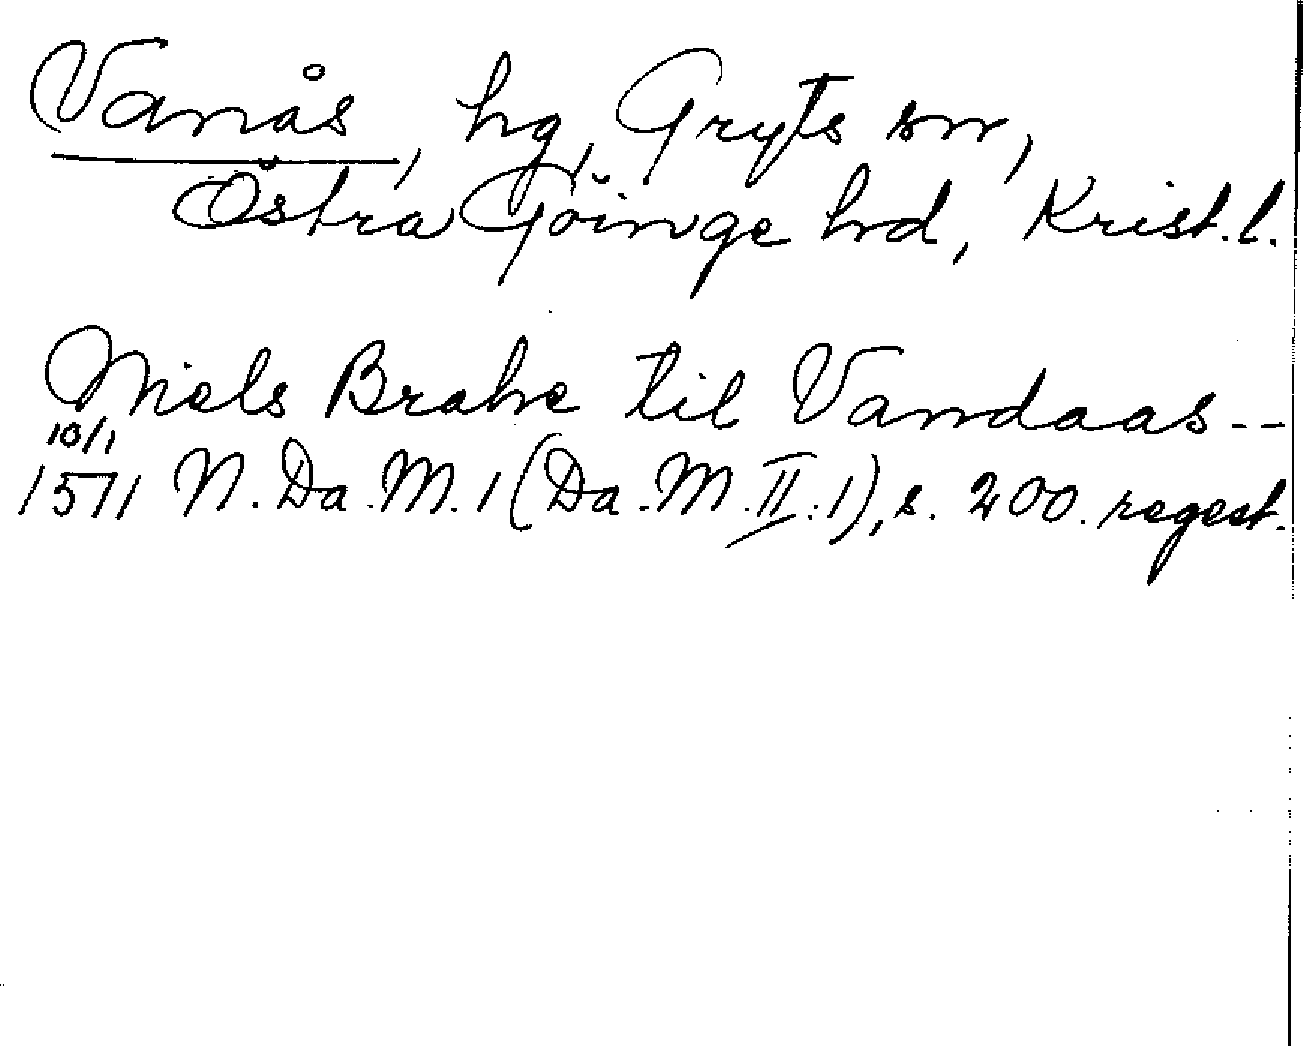 Vanås, hg, Gryts sn,
Östra Göinge hd, Krist.l.
Niels Brahe til Vandaas --
10/1
1571 N.Da.M.1 (Da.M.II:1), s. 200. regest.